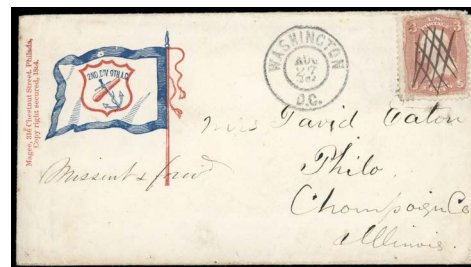 Magee, 316 Chestnut Street, Philada.
Copy right secured, 1864.
2ND. DIV 9TH A.C.
WASHINGTON
AUG
27
D.C.
3 3
Mrs David Eaton
Missent & ford
Philo
Champaign Co
Illinois